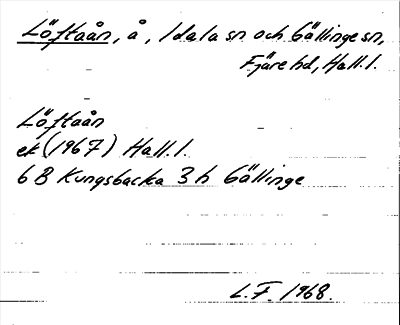 Löftaån, å, Idala sn och Gällinge sn,
Fjäre hd, Hall. l.
Löftaån
ek (1967) Hall. l.
6 B Kungsbacka 3 h Gällinge
L.F. 1968.